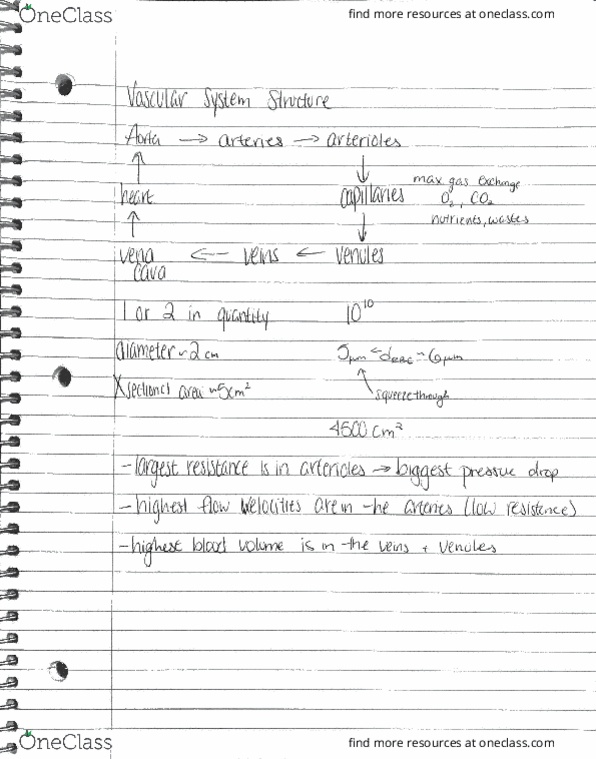 OneClass find more resources at oneclass.com
Vascular System Structure
Aorta → arteries → arterioles
↑ ↓
heart capillaries max gas exchange
O₂, CO₂
nutrients, wastes
↑ ↓
vena cava ← veins ← venules
1 or 2 in quantity 10¹⁰
diameter ~2 cm 5μm < ~6μm
Xsectional area ~5cm² squeeze through
4500 cm²
- largest resistance is in arterioles → biggest pressure drop
- highest flow velocities are in the arteries (low resistance)
- highest blood volume is in the veins + venules
OneClass find more resources at oneclass.com